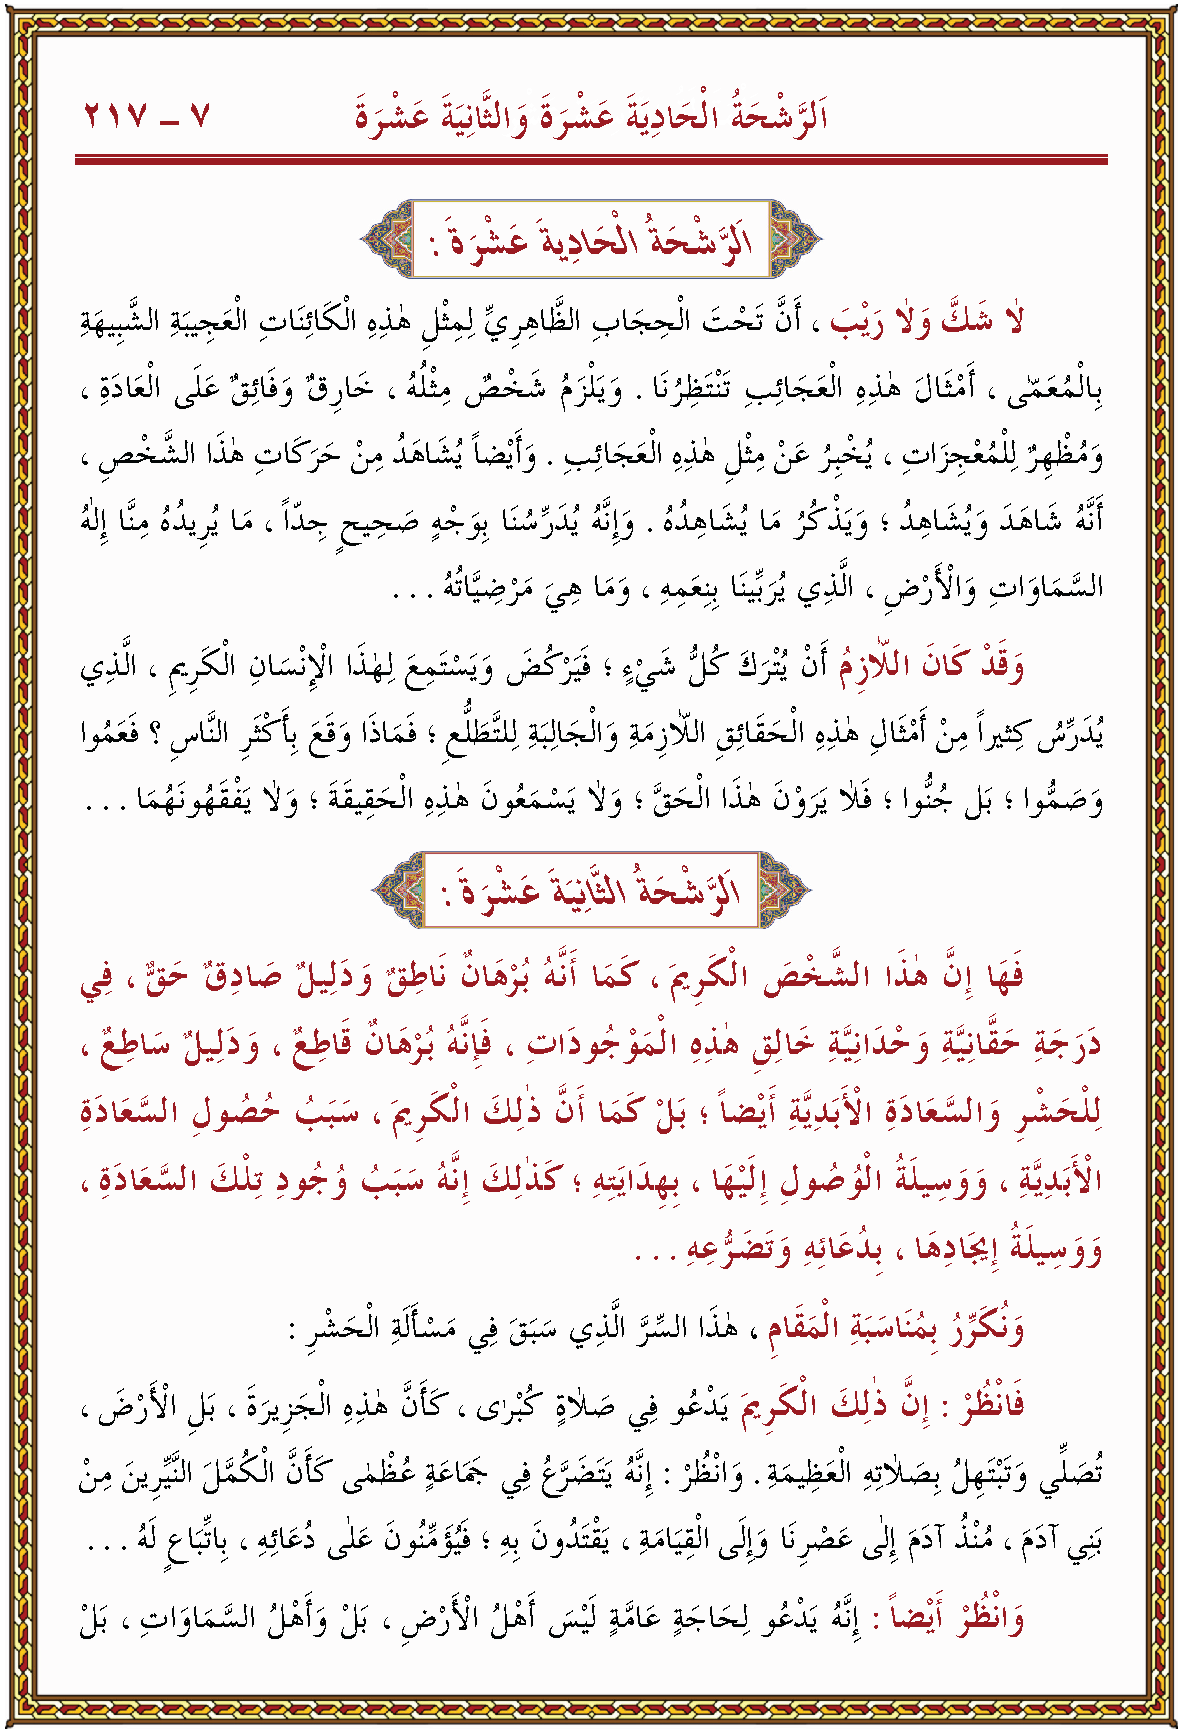 اَلرَّشْحَةُ الْحَادِيَةَ عَشْرَةَ وَالثَّانِيَةَ عَشْرَةَ ٧ ــ ٢١٧
اَلرَّشْحَةُ الْحَادِيةَ عَشْرَةَ :
لاٰ شَكَّ وَلاٰ رَيْبَ ، أَنَّ تَحْتَ الْحِجَابِ الظَّاهِرِيِّ لِمِثْلِ هٰذِهِ الْكَائِنَاتِ الْعَجِيبَةِ الشَّبِيهَةِ
بِالْمُعَمّٰى ، أَمْثَالَ هٰذِهِ الْعَجَائِبِ تَنْتَظِرُنَا . وَيَلْزَمُ شَخْصٌ مِثْلُهُ ، خَارِقٌ وَفَائِقٌ عَلَى الْعَادَةِ ،
وَمُظْهِرٌ لِلْمُعْجِزَاتِ ، يُخْبِرُ عَنْ مِثْلِ هٰذِهِ الْعَجَائِبِ . وَأَيْضاً يُشَاهَدُ مِنْ حَرَكَاتِ هٰذَا الشَّخْصِ ،
أَنَّهُ شَاهَدَ وَيُشَاهِدُ ؛ وَيَذْكُرُ مَا يُشَاهِدُهُ . وَإِنَّهُ يُدَرِّسُنَا بِوَجْهٍ صَحِيحٍ جِدّاً ، مَا يُرِيدُهُ مِنَّا إِلٰهُ
السَّمَاوَاتِ وَالْأَرْضِ ، الَّذِي يُرَبِّينَا بِنِعَمِهِ ، وَمَا هِيَ مَرْضِيَّاتُهُ . . .
وَقَدْ كَانَ اللاّٰزِمُ أَنْ يُتْرَكَ كُلُّ شَيْءٍ ؛ فَيَرْكُضَ وَيَسْتَمِعَ لِهٰذَا الْإِنْسَانِ الْكَرِيمِ ، الَّذِي
يُدَرِّسُ كَثِيراً مِنْ أَمْثَالِ هٰذِهِ الْحَقَائِقِ اللاّٰزِمَةِ وَالْجَالِبَةِ لِلتَّطَلُّعِ ؛ فَمَاذَا وَقَعَ بِأَكْثَرِ النَّاسِ ؟ فَعَمُوا
وَصَمُّوا ؛ بَل جُنُّوا ؛ فَلاٰ يَرَوْنَ هٰذَا الْحَقَّ ؛ وَلاٰ يَسْمَعُونَ هٰذِهِ الْحَقِيقَةَ ؛ وَلاٰ يَفْقَهُونَهُمَا . . .
اَلرَّشْحَةُ الثَّانِيَةَ عَشْرَةَ :
فَهَا إِنَّ هٰذَا الشَّخْصَ الْكَرِيمَ ، كَمَا أَنَّهُ بُرْهَانٌ نَاطِقٌ وَدَلِيلٌ صَادِقٌ حَقٌّ ، فِي
دَرَجَةِ حَقَّانِيَّةِ وَحْدَانِيَّةِ خَالِقِ هٰذِهِ الْمَوْجُودَاتِ ، فَإِنَّهُ بُرْهَانٌ قَاطِعٌ ، وَدَلِيلٌ سَاطِعٌ ،
لِلْحَشْرِ وَالسَّعَادَةِ الْأَبَدِيَّةِ أَيْضاً ؛ بَلْ كَمَا أَنَّ ذٰلِكَ الْكَرِيمَ ، سَبَبُ حُصُولِ السَّعَادَةِ
الْأَبَدِيَّةِ ، وَوَسِيلَةُ الْوُصُولِ إِلَيْهَا ، بِهِدَايَتِهِ ؛ كَذٰلِكَ إِنَّهُ سَبَبُ وُجُودِ تِلْكَ السَّعَادَةِ ،
وَوَسِيلَةُ إِيجَادِهَا ، بِدُعَائِهِ وَتَضَرُّعِهِ . . .
وَنُكَرِّرُ بِمُنَاسَبَةِ الْمَقَامِ ، هٰذَا السِّرَّ الَّذِي سَبَقَ فِي مَسْأَلَةِ الْحَشْرِ :
فَانْظُرْ : إِنَّ ذٰلِكَ الْكَرِيمَ يَدْعُو فِي صَلاٰةٍ كُبْرٰى ، كَأَنَّ هٰذِهِ الْجَزِيرَةَ ، بَلِ الْأَرْضَ ،
تُصَلِّي وَتَبْتَهِلُ بِصَلاٰتِهِ الْعَظِيمَةِ . وَانْظُرْ : إِنَّهُ يَتَضَرَّعُ فِي جَمَاعَةٍ عُظْمٰى كَأَنَّ الْكُمَّلَ النَّيِّرِينَ مِنْ
بَنِي آدَمَ ، مُنْذُ آدَمَ إِلٰى عَصْرِنَا وَإِلَى الْقِيَامَةِ ، يَقْتَدُونَ بِهِ ؛ فَيُؤَمِّنُونَ عَلٰى دُعَائِهِ ، بِاتِّبَاعٍ لَهُ . . .
وَانْظُرْ أَيْضاً : إِنَّهُ يَدْعُو لِحَاجَةٍ عَامَّةٍ لَيْسَ أَهْلُ الْأَرْضِ ، بَلْ وَأَهْلُ السَّمَاوَاتِ ، بَلْ